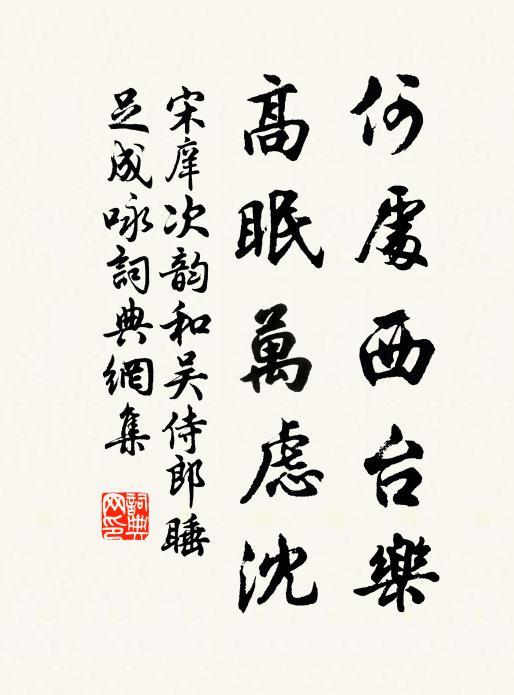 何處西台樂
高眠萬慮沈
宋庠次韵和吴侍郎睡
足成咏詞典網集
詞典網印